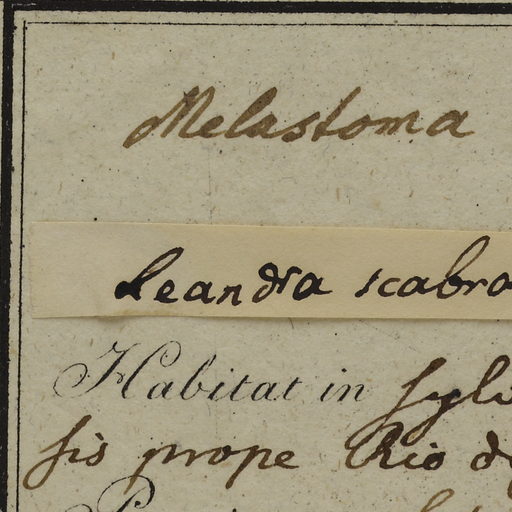 Melastoma
Leandra scabra
Habitat in
sis prope Rio